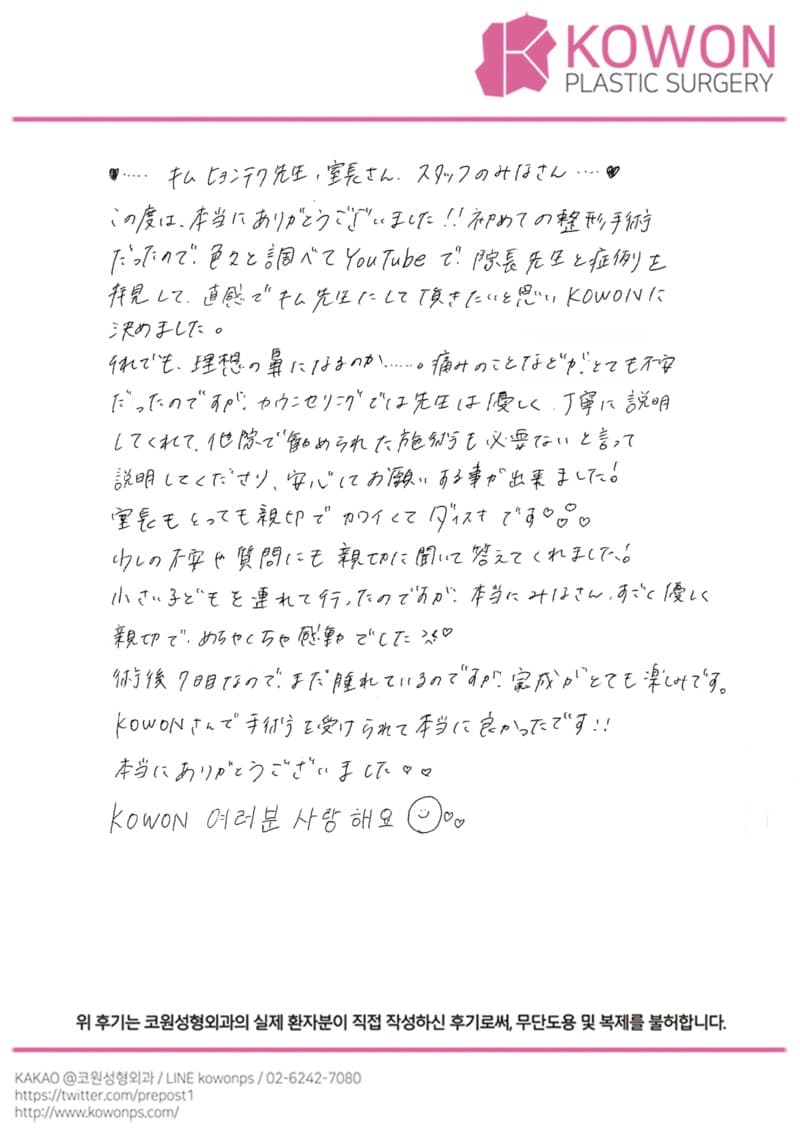 KOWON
PLASTIC SURGERY
♥····· キム ヒョンテク先生、室長さん、スタッフのみなさん ····♥
この度は、本当にありがとうございました!! 初めての整形手術
だったので、色々と調べて YouTube で、院長先生と症例を
拝見して、直感でキム先生にして頂きたいと思い KOWONに
決めました。
それでも、理想の鼻になるのか……。痛みのことなどが、とても不安
だったのですが、カウンセリングでは先生は優しく、丁寧に説明
してくれて、他院で勧められた施術も必要ないと言って
説明してくださり、安心してお願いする事が出来ました!
室長もとっても親切でカワイくてダイスキです♡♡♡♡
少しの不安や質問にも親切に聞いて答えてくれました!
小さい子どもを連れて行ったのですが、本当にみなさん、すごく優しく
親切で、めちゃくちゃ感動でした ♡
術後7日目なので、まだ腫れているのですが、完成がとても楽しみです。
KOWONさんで手術を受けられて本当に良かったです!!
本当にありがとうございました ♡ ♡
KOWON 여러분 사랑해요 ☺♡♡
위 후기는 코원성형외과의 실제 환자분이 직접 작성하신 후기로써, 무단도용 및 복제를 불허합니다.
KAKAO @코원성형외과 / LINE kowonps / 02-6242-7080
https://twitter.com/prepost1
http://www.kowonps.com/